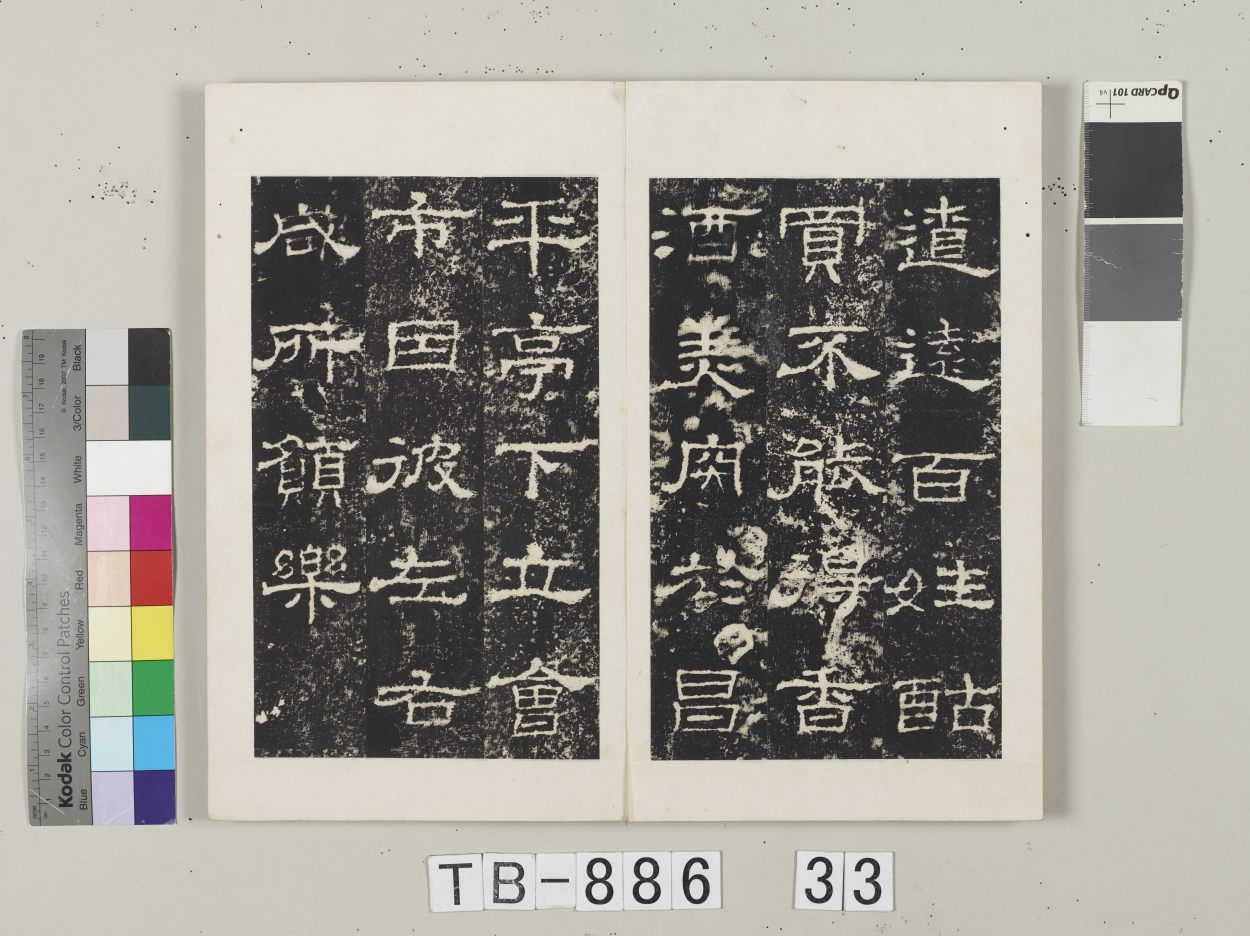 道遠百姓酤
買不能得香
酒美肉於昌
平亭下立會
市因彼左右
咸所願樂
TB-886 33
QPCARD 101 v4
Kodak Color Control Patches
© Kodak, 2007 TM: Kodak
Blue Cyan Green Yellow Red Magenta White 3/Color Black